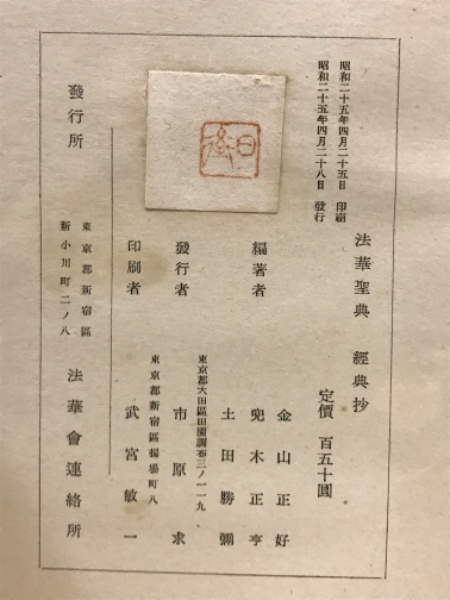 昭和二十五年四月二十五日 印刷
昭和二十五年四月二十八日 發行
法華聖典 經典抄
定價 百五十圓
編著者
金山正好
兜木正亨
土田勝彌
發行者
東京都大田區田園調布三ノ一一九
市原求
印刷者
東京都新宿區揚場町八
武宮敏一
發行所
東京都新宿區
新小川町二ノ八
法華會連絡所